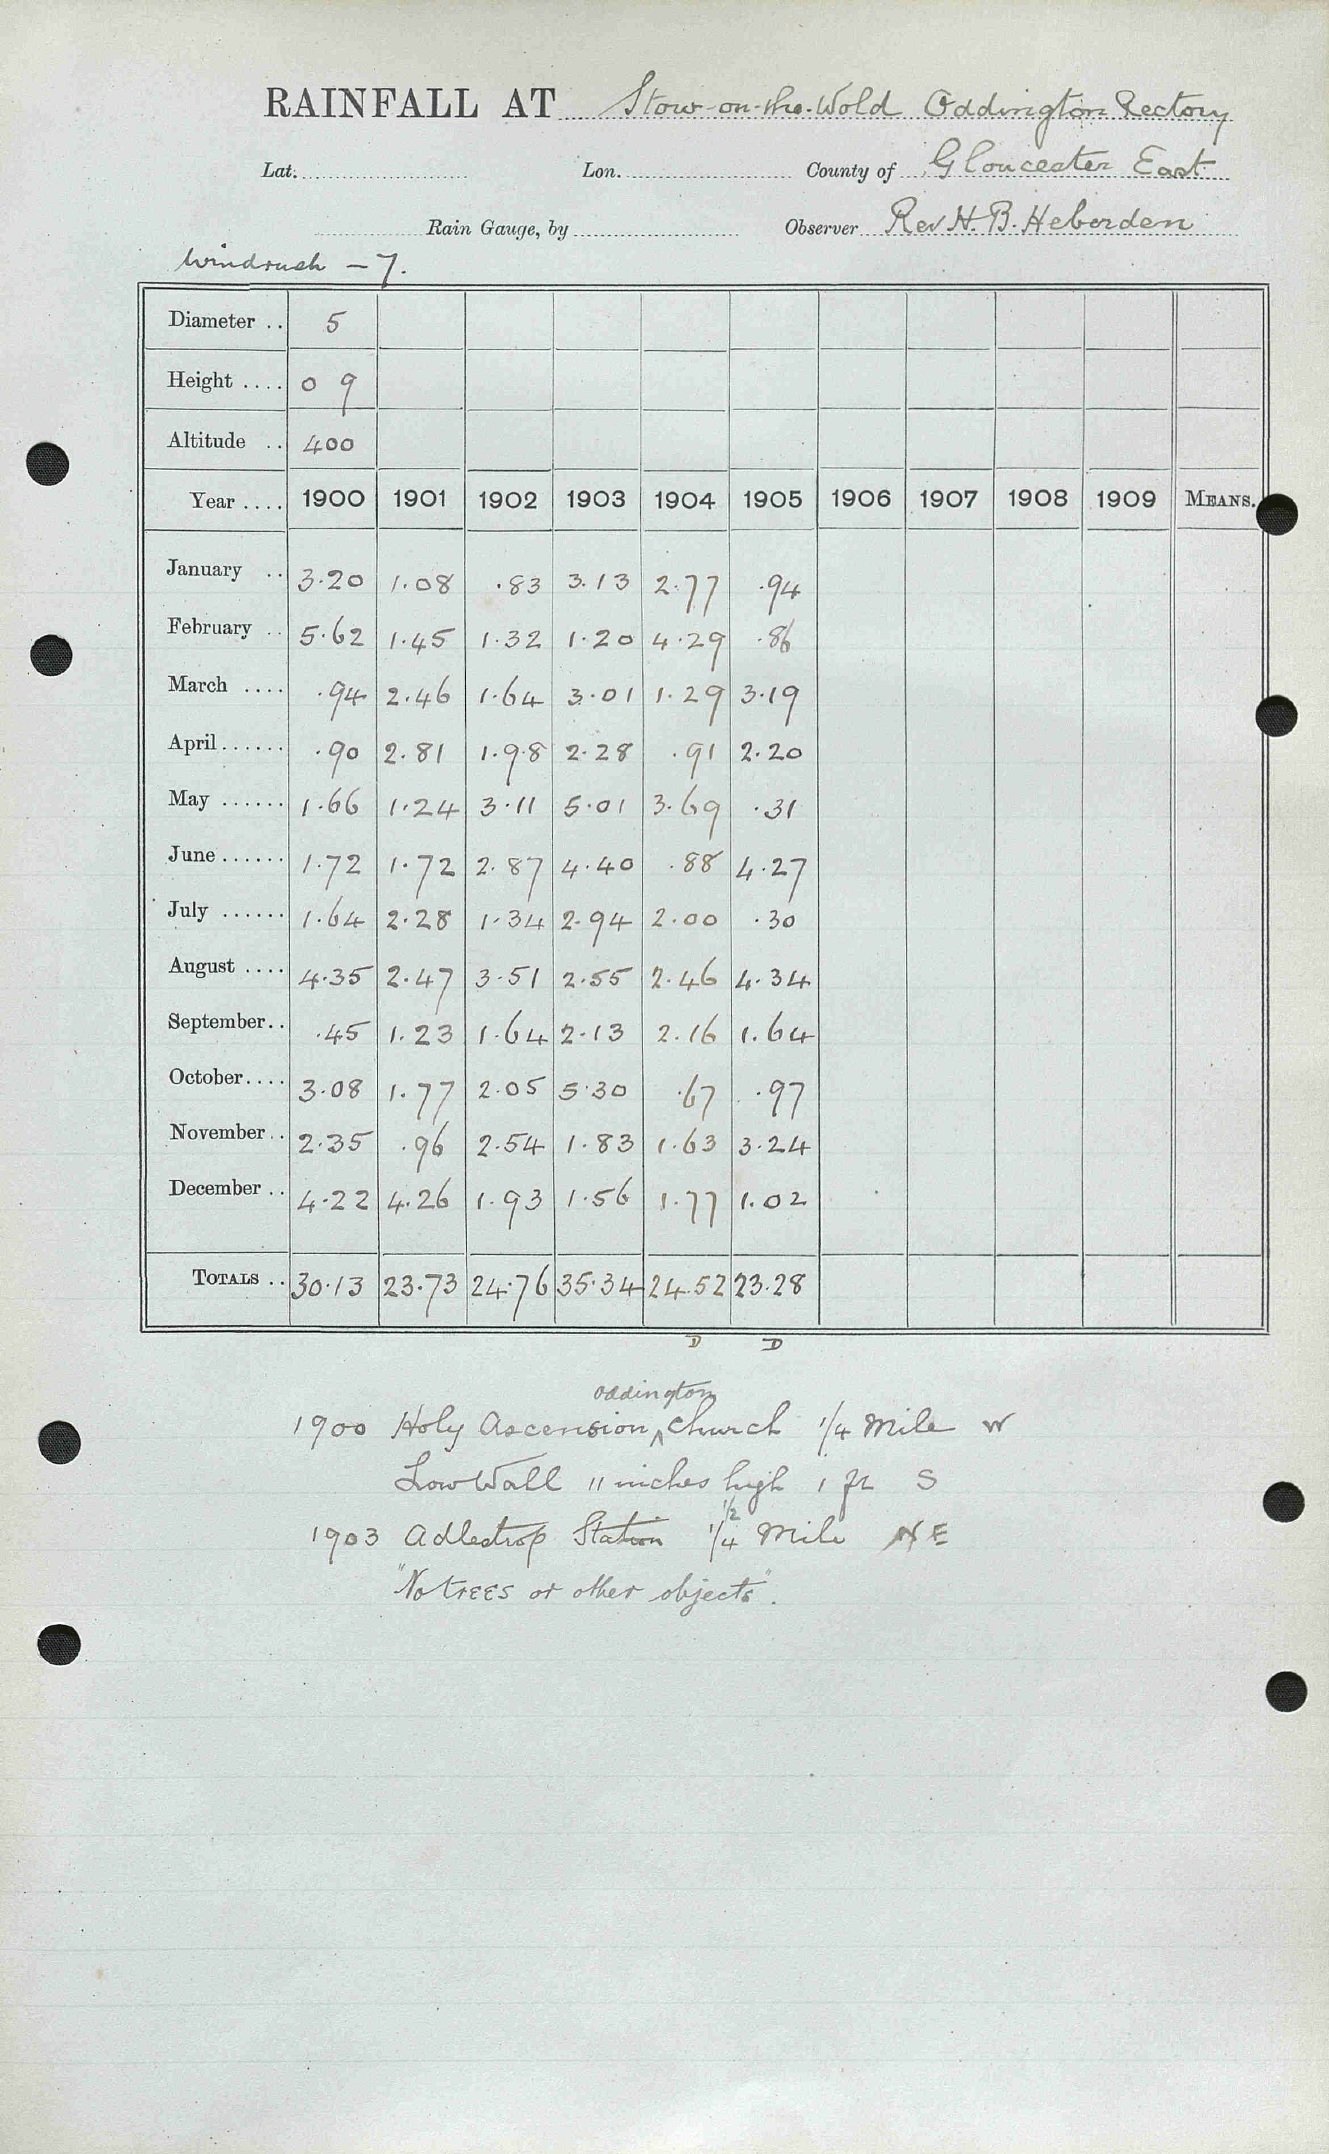 RAINFALL AT Stow-on-the-Wold Oddington Rectory
Lat. Lon. County of Gloucester East
Rain Gauge, by Observer Rev H. B. Heberden
Windrush – 7.
Diameter .. 5
Height .... 0 9
Altitude .. 400
Year .... 1900 1901 1902 1903 1904 1905 1906 1907 1908 1909 MEANS.
January .. 3.20 1.08 .83 3.13 2.77 .94
February .. 5.62 1.45 1.32 1.20 4.29 .86
March .... .94 2.46 1.64 3.01 1.29 3.19
April ...... .90 2.81 1.98 2.28 .91 2.20
May ...... 1.66 1.24 3.11 5.01 3.69 .31
June ...... 1.72 1.72 2.87 4.40 .88 4.27
July ...... 1.64 2.28 1.34 2.94 2.00 .30
August .... 4.35 2.47 3.51 2.55 2.46 4.34
September.. .45 1.23 1.64 2.13 2.16 1.64
October.... 3.08 1.77 2.05 5.30 .67 .97
November.. 2.35 .96 2.54 1.83 1.63 3.24
December .. 4.22 4.26 1.93 1.56 1.77 1.02
TOTALS .. 30.13 23.73 24.76 35.34 24.52 23.28
D D
Oddington
1900 Holy Ascension ^ Church 1/4 Mile W
Low Wall 11 inches high 1 ft S
1/2
1903 Adlestrop Station 1/4 Mile NE
"No trees or other objects".